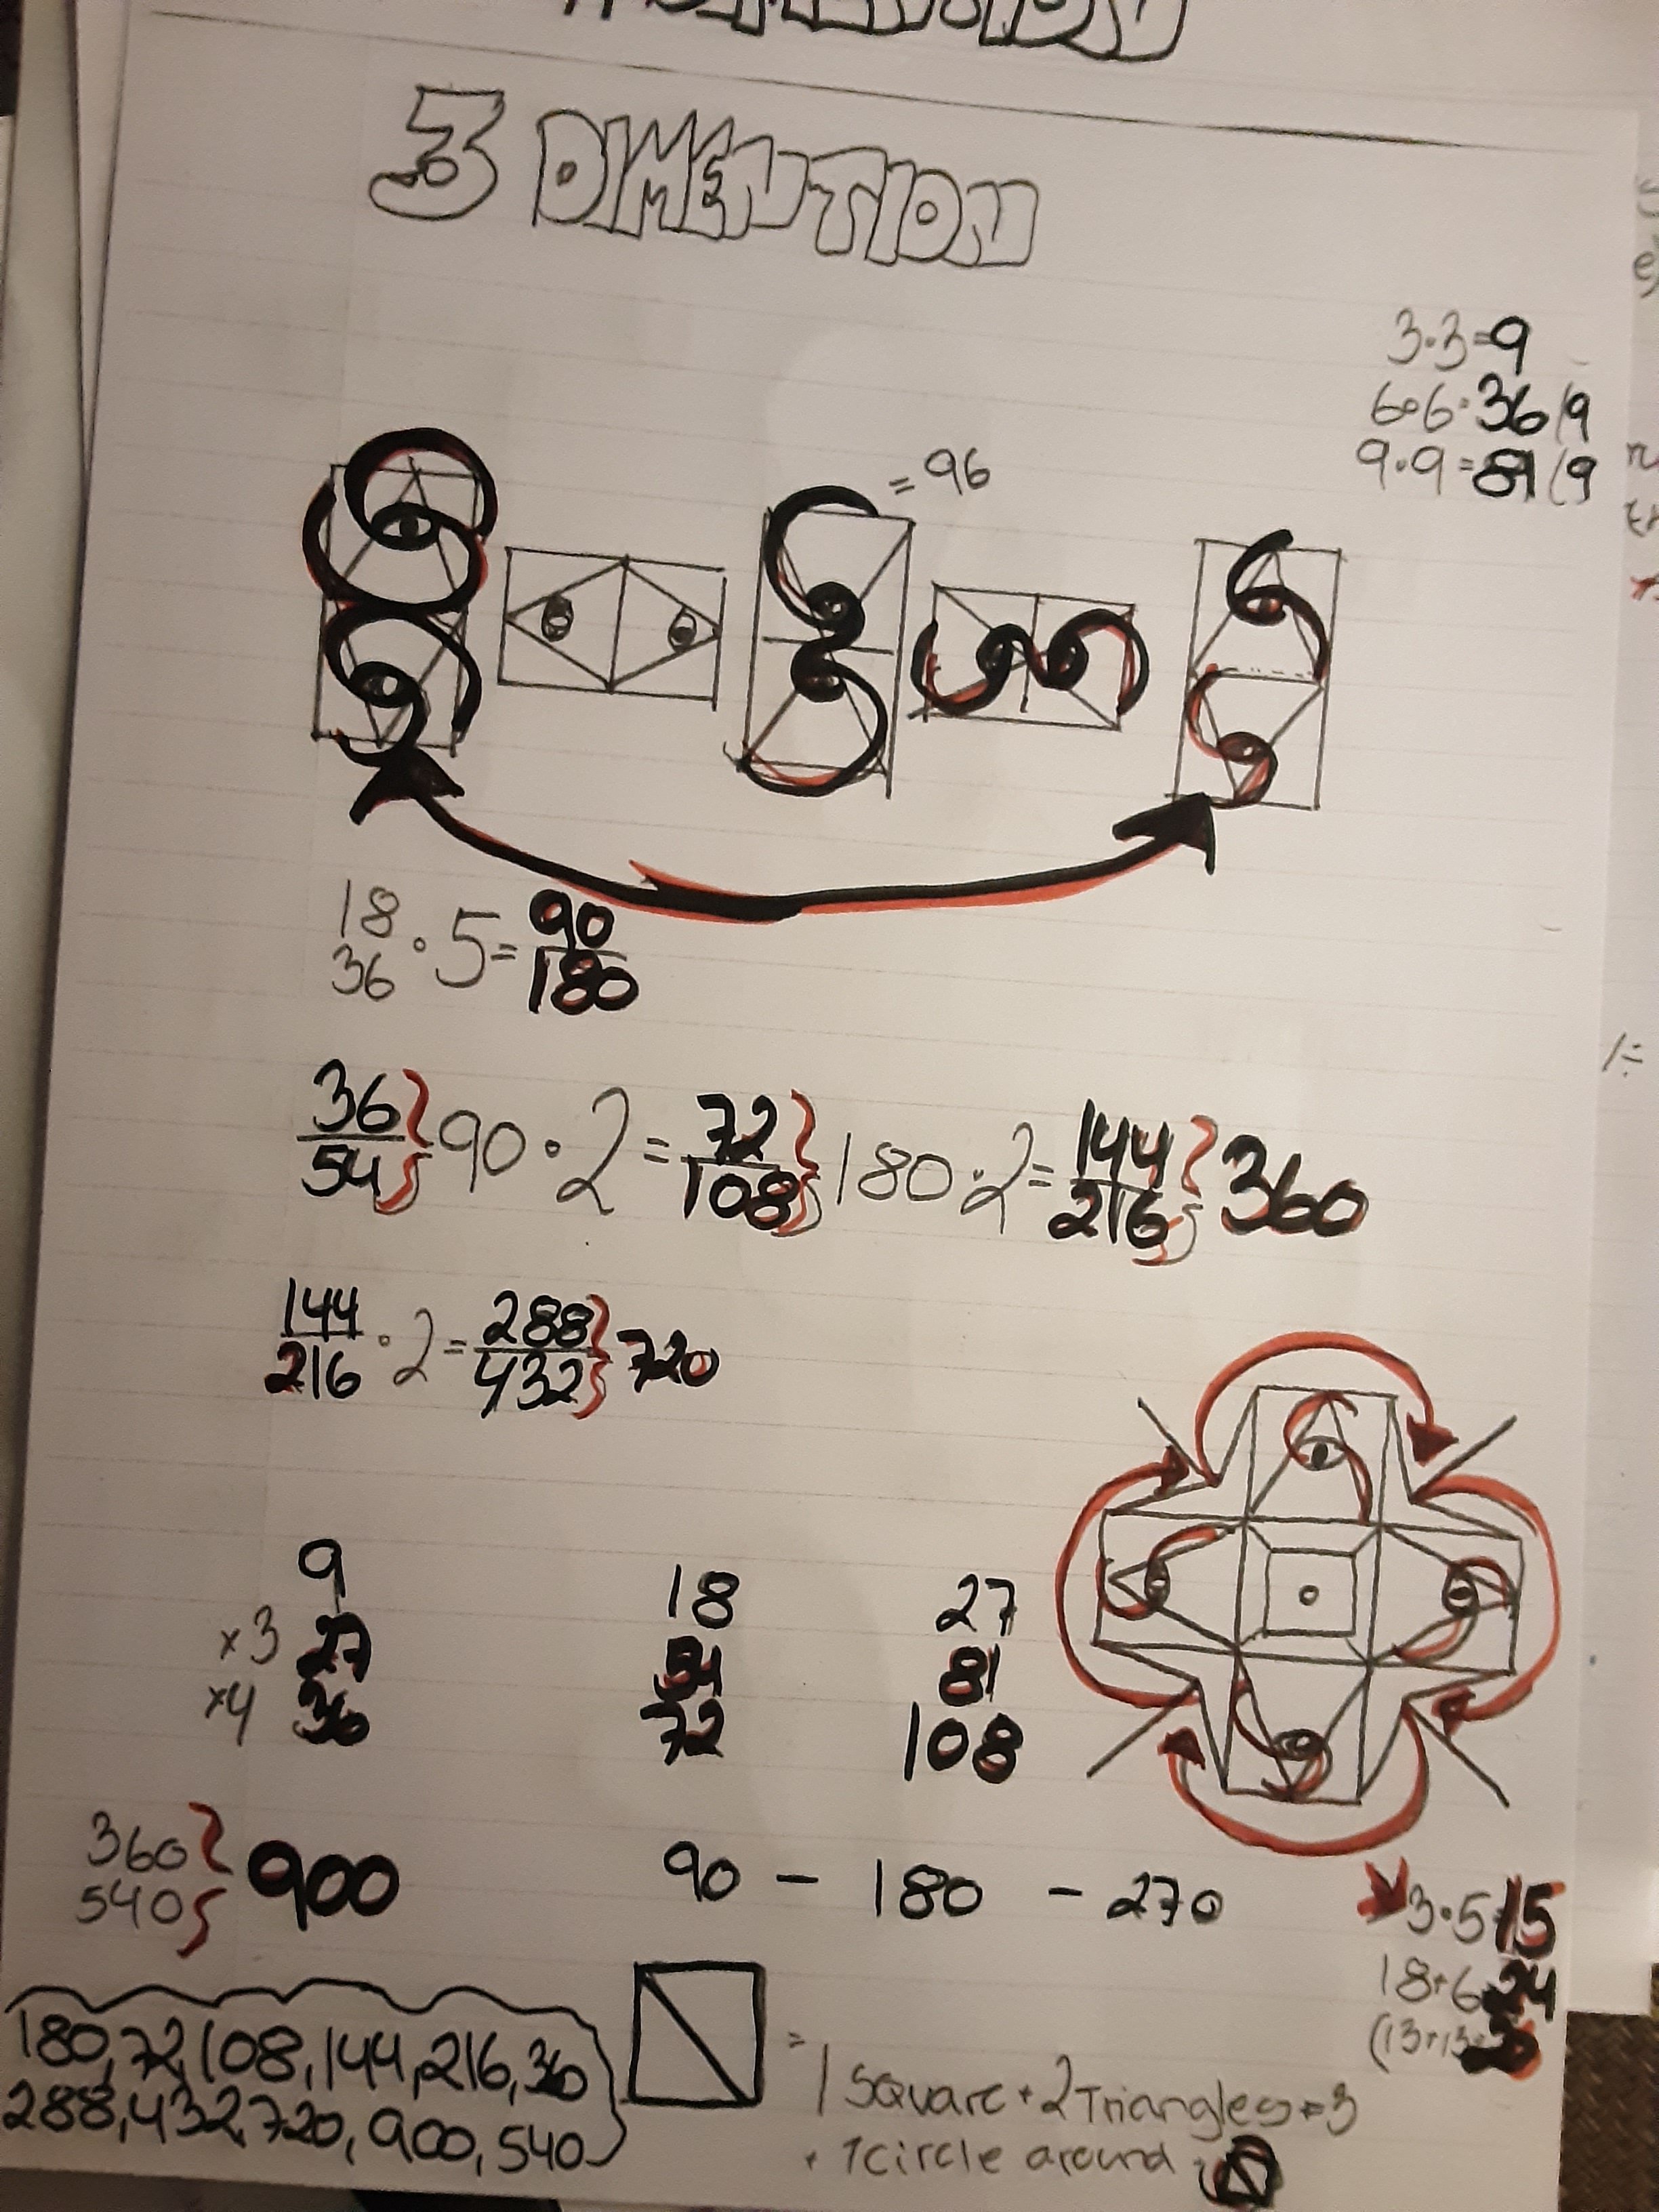 3 DIMENTION
3·3=9
6·6=36/9
9·9=81/9
=96
18
36 · 5= 90
180
36
54 } 90 · 2 = 72
108 } 180 · 2 = 144
216 } 360
144
216 · 2 = 288
432 } 720
9 18 27
×3 27 54 81
×4 36 72 108
360
540 } 900
90 – 180 – 270
3·5=15
18+6=24
180, 72, 108, 144, 216, 36
288, 432, 720, 900, 540
= 1 Square + 2 Triangles = 3
+ 1 circle around